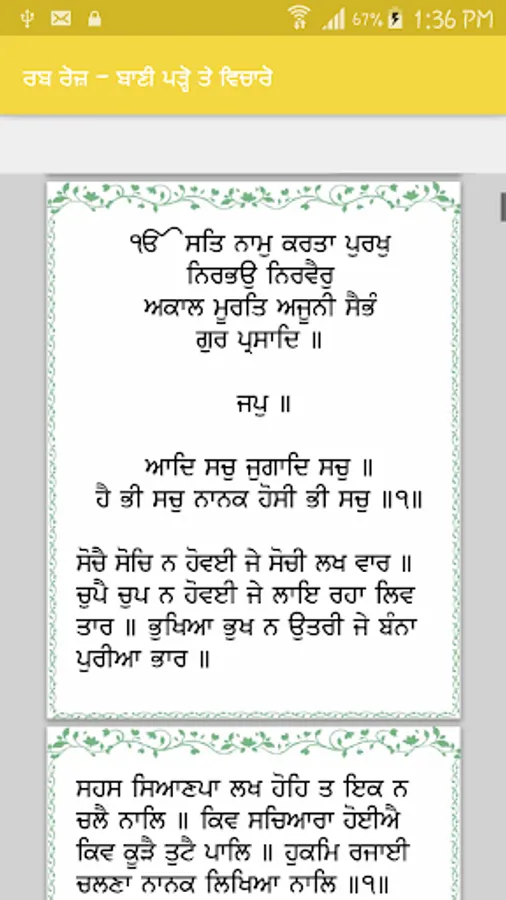 67% 1:36 PM
ਰਬ ਰੋਜ਼ - ਬਾਣੀ ਪੜ੍ਹੋ ਤੇ ਵਿਚਾਰੋ
ੴ ਸਤਿ ਨਾਮੁ ਕਰਤਾ ਪੁਰਖੁ
ਨਿਰਭਉ ਨਿਰਵੈਰੁ
ਅਕਾਲ ਮੂਰਤਿ ਅਜੂਨੀ ਸੈਭੰ
ਗੁਰ ਪ੍ਰਸਾਦਿ ॥
ਜਪੁ ॥
ਆਦਿ ਸਚੁ ਜੁਗਾਦਿ ਸਚੁ ॥
ਹੈ ਭੀ ਸਚੁ ਨਾਨਕ ਹੋਸੀ ਭੀ ਸਚੁ ॥੧॥
ਸੋਚੈ ਸੋਚਿ ਨ ਹੋਵਈ ਜੇ ਸੋਚੀ ਲਖ ਵਾਰ ॥
ਚੁਪੈ ਚੁਪ ਨ ਹੋਵਈ ਜੇ ਲਾਇ ਰਹਾ ਲਿਵ
ਤਾਰ ॥ ਭੁਖਿਆ ਭੁਖ ਨ ਉਤਰੀ ਜੇ ਬੰਨਾ
ਪੁਰੀਆ ਭਾਰ ॥
ਸਹਸ ਸਿਆਣਪਾ ਲਖ ਹੋਹਿ ਤ ਇਕ ਨ
ਚਲੈ ਨਾਲਿ ॥ ਕਿਵ ਸਚਿਆਰਾ ਹੋਈਐ
ਕਿਵ ਕੂੜੈ ਤੁਟੈ ਪਾਲਿ ॥ ਹੁਕਮਿ ਰਜਾਈ
ਚਲਣਾ ਨਾਨਕ ਲਿਖਿਆ ਨਾਲਿ ॥੧॥